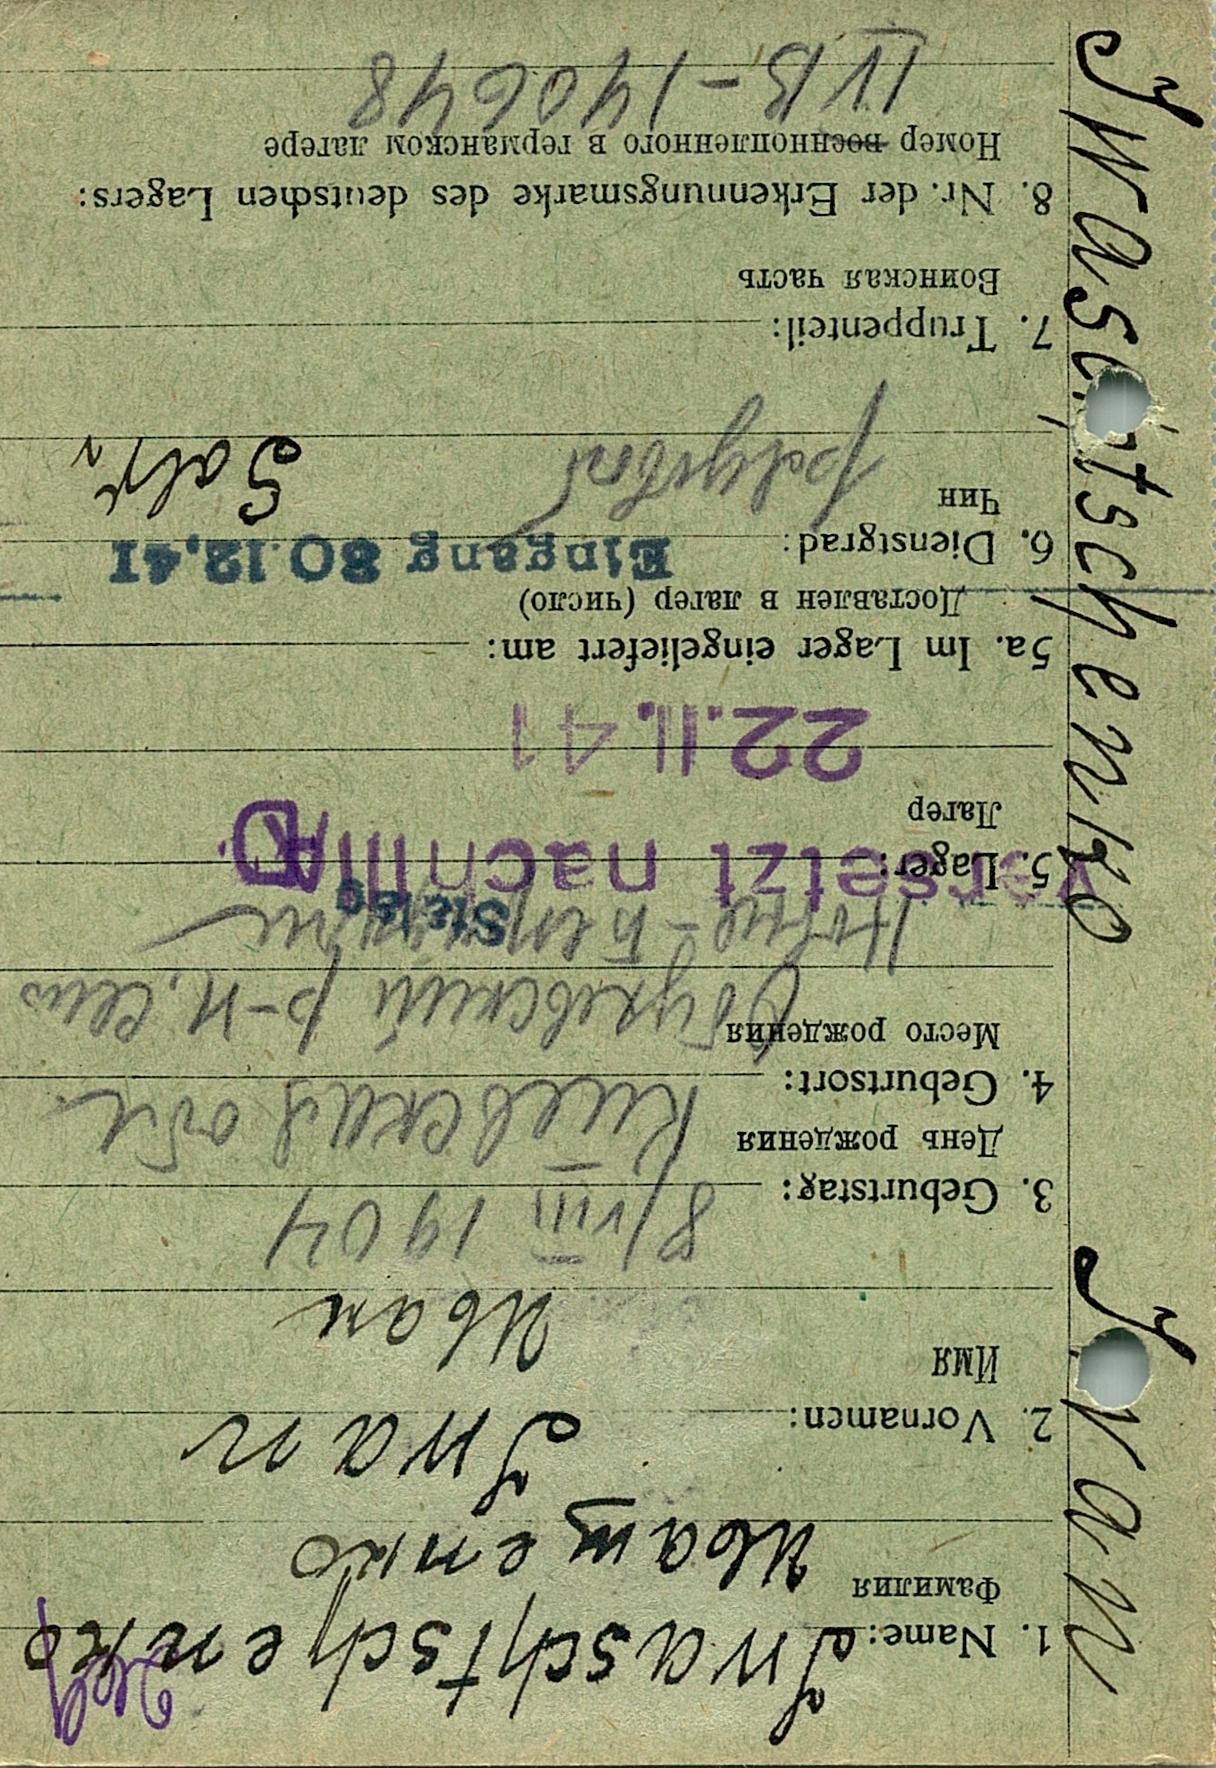 Iwaschtschenko Iwan
1. Name: Iwaschtschenko
Фамилия Иващенко
2. Vornamen: Iwan
Имя Иван
3. Geburtstag: 8/VIII 1904
День рождения
4. Geburtsort: Киевская обл.
Место рождения Обуховский р-н, село
5. Lager: Stalag
Лагер
versetzt nach III D
22.11.41
5a. Im Lager eingeliefert am:
Доставлен в лагер (число)
Eingang 30.12.41
6. Dienstgrad:
Чин Sold.
7. Truppenteil:
Воинская часть
8. Nr. der Erkennungsmarke des deutschen Lagers:
Номер военнопленного в германском лагере
IV B - 140648